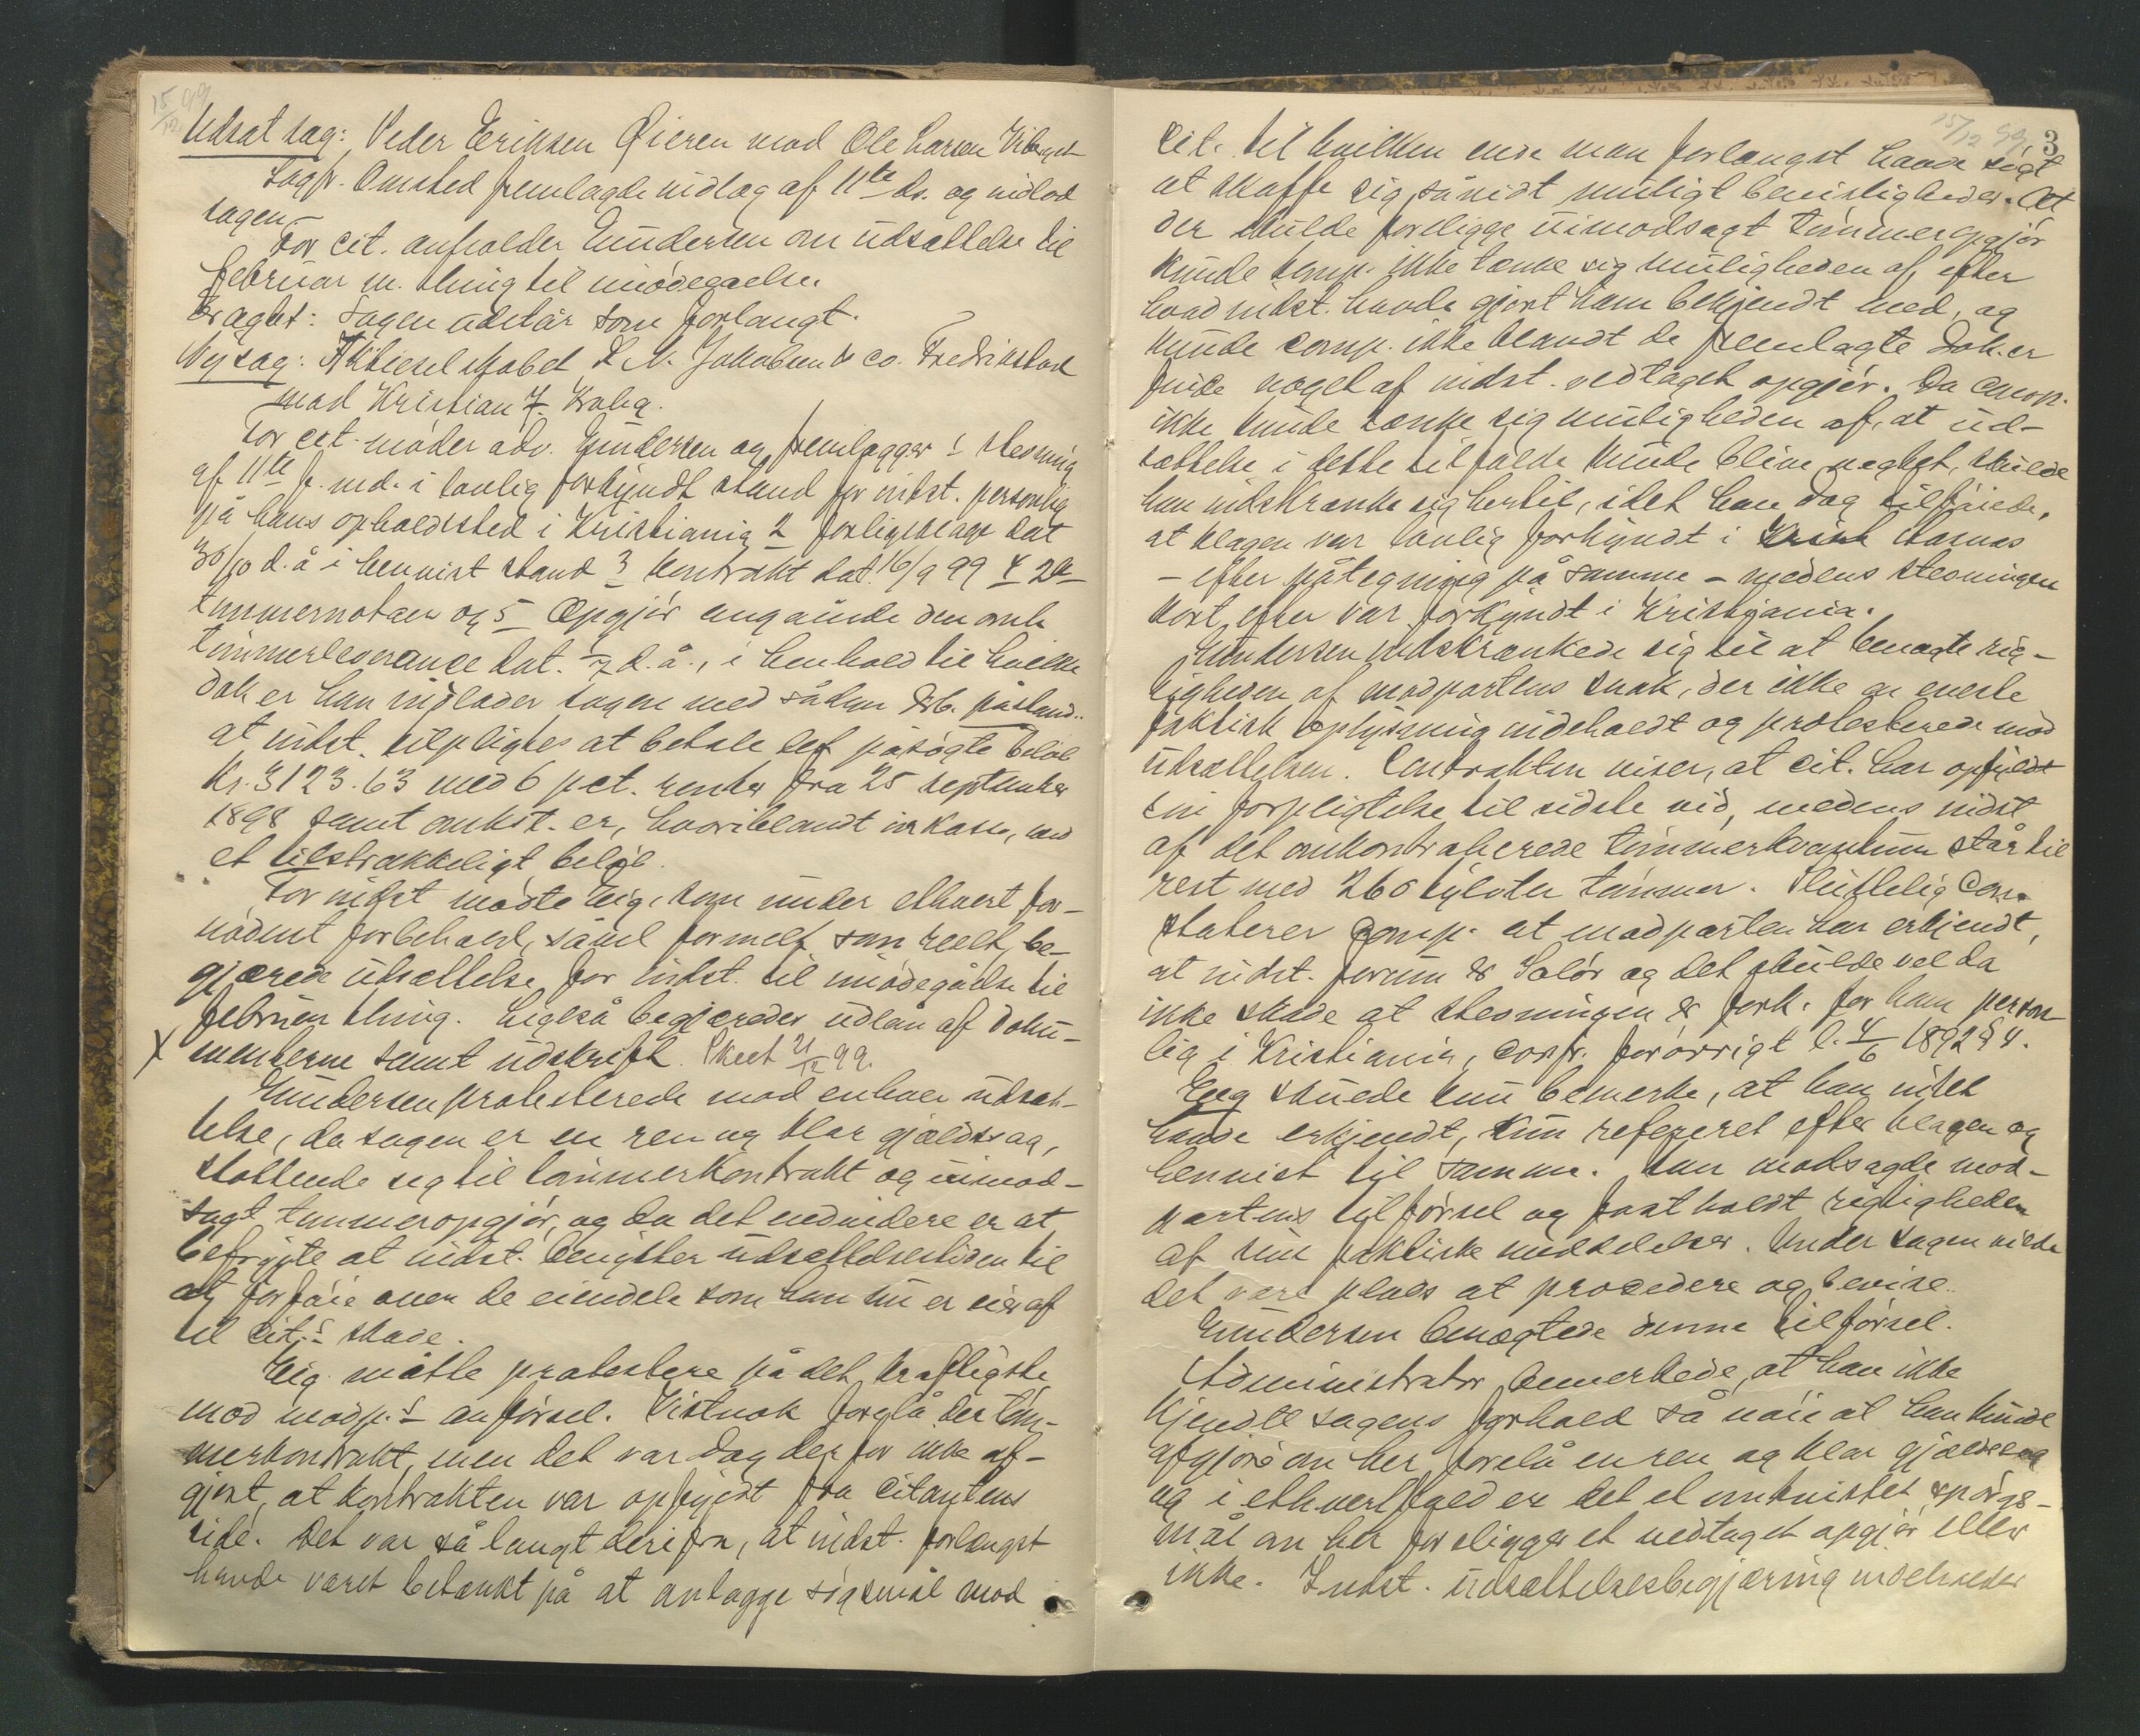 15/12 99
Udsat sag: Peder Eriksen Øieren mod Ole Larsen
Sagf. Omsted fremlagde indlæg af 11te ds. og indlod
sagen.
For cit. anholder Gundersen om udsættelse til
februar m. thing til imødegåelse.
Eragtet: Sagen udstår som forlangt.
Ny sag: Aktieselskabet L. N. Jakobsen & co. Fredrikstad
mod Kristian F. Kolig.
For cit. møder adv. Gundersen og fremlægger 1 stevning
af 11te f. md. i lovlig forkyndt stand for indst. personlig
på hans opholdssted i Kristiania 2 forligsklage dat
30/10 d. å i henvist stand 3 kontrakt dat. 16/9 99 4 2de
tømmernotaer og 5 Opgjør angående den omh.
tømmerleverance dat. d. å., i henhold til hvilke
dok.er han indlader sagen med sådan påstand:
at indst. tilpligtes at betale det påsøgte beløb
Kr. 3123.63 med 6 pct. renter fra 25 september
1898 samt omkst.er, hvoriblandt inkasso, med
et tilstrækkeligt beløb.
For indst mødte Eig, som under ethvert for-
nødent forbehold, såvel formelt som reelt, be-
gjærede udsættelse for indst. til imødegåelse til
februar thing. Ligeså begjæredes udlån af doku-
x menterne samt udskrift. Skeet 21/12 99.
Gundersen protesterede mod enhver udsæt-
telse, da sagen er en ren og klar gjældssag,
støttende sig til tømmerkontrakt og uimod-
sagt tømmeropgjør, og da det endvidere er at
befrygte at indst. benytter udsættelsestiden til
at forføie over de eiendele som han nu er eier af
til cit.s skade.
Eig måtte protestere på det kraftigste
mod modp.s anførsel. Vistnok forelå der tøm-
merkontrakt, men det var dog derfor ikke af-
gjort, at kontrakten var opfyldt fra citantens
side. Det var så langt derifra, at indst. forlængst
havde været betænkt på at anlægge søgsmål mod
15/12 99. 3
cit. til hvilken ende man forlængst havde søgt
at skaffe sig såvidt muligt bevisligheder. At
der skulde foreligge uimodsagt tømmeropgjør
kunde comp. ikke tænke sig muligheden af, efter
hvad indst. havde gjort ham bekjendt med, og
kunde comp. ikke blandt de fremlagte dok.er
finde noget af indst. vedtaget opgjør. Da comp.
ikke kunde tænke sig muligheden af, at ud-
sættelse i dette tilfælde kunde blive nægtet, skulde
han indskrænke sig hertil, idet han dog tilføiede,
at klagen var lovlig forkyndt i
– efter påtegning på samme – medens stevningen
kort efter var forkyndt i Kristiania.
Gundersen indskrænkede sig til at benægte rig-
tigheden af modpartens snak, der ikke en eneste
faktisk oplysning indeholdt og protesterede mod
udsættelsen. Contrakten viser, at cit. har opfyldt
sin forpligtelse til sidste vid, medens indst.
af det omkontraherede tømmerkvantum står til
rest med 260 tylvter tømmer. Sluttelig con-
staterer comp. at modparten har erkjendt,
at indst. forum er Solør og det skulde vel da
ikke skade at stevningen er fork. for ham person-
lig i Kristiania, conf. forøvrigt l. 4/6 1892 § 4.
Eeg skulde kun bemerke, at han intet
havde erkjendt, kun refereret efter klagen og
henvist til samme. Han modsagde mod-
partens tilførsel og fastholdt rigtigheden
af sine faktiske meddelelser. Under sagen vilde
det være plads at procedere og bevise.
Gundersen benægtede denne tilførsel.
Administrator bemerkede, at han ikke
kjendte sagens forhold så nøie at han kunde
afgjøre om her forelå en ren og klar gjældssag
og i ethvert fald er det et omtvistet spørgs-
mål om her foreligger et vedtaget opgjør eller
ikke. Indst. udsættelsesbegjæring indeholder